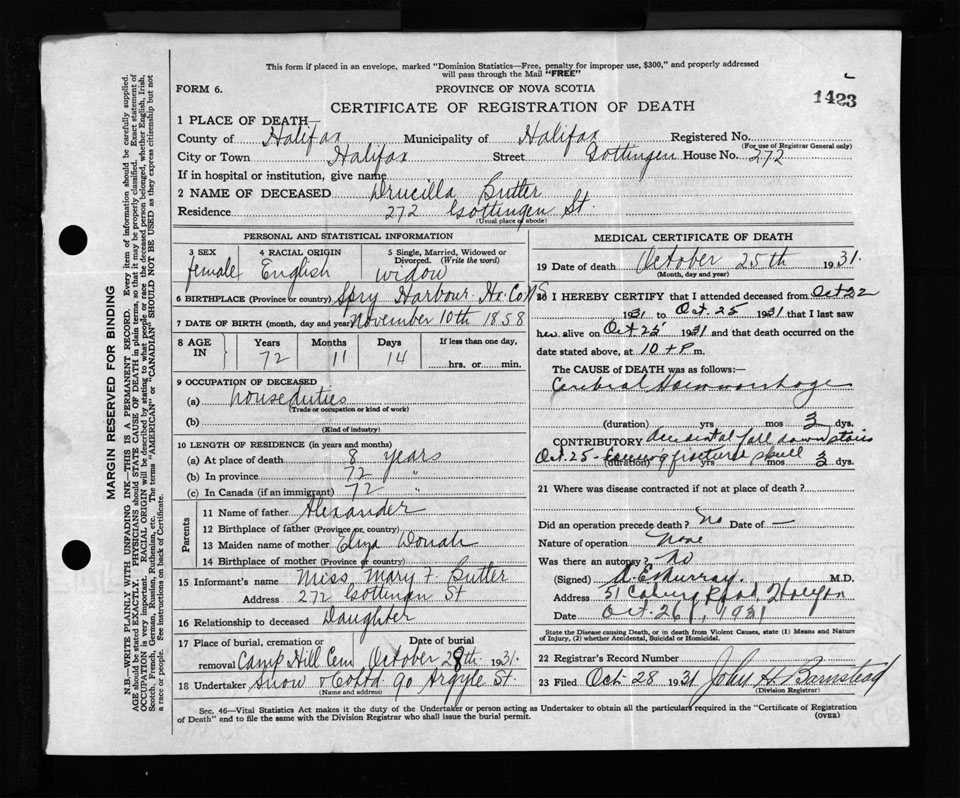 This form if placed in an envelope, marked "Dominion Statistics—Free, penalty for improper use, $300," and properly addressed
will pass through the Mail "FREE"
FORM 6.
PROVINCE OF NOVA SCOTIA
1423
CERTIFICATE OF REGISTRATION OF DEATH
1 PLACE OF DEATH—
County of Halifax Municipality of Halifax Registered No.
(For use of Registrar General only)
City or Town Halifax Street Gottingen House No. 272
If in hospital or institution, give name
2 NAME OF DECEASED Drucilla Butler
Residence 272 Gottingen St.
(Usual place of abode)
PERSONAL AND STATISTICAL INFORMATION
3 SEX 4 RACIAL ORIGIN 5 Single, Married, Widowed or Divorced. (Write the word)
female English widow
6 BIRTHPLACE (Province or country) Spry Harbour Hx. Co NS
7 DATE OF BIRTH (month, day and year) November 10th 1858
8 AGE IN Years Months Days If less than one day,
72 11 14 hrs. or min.
9 OCCUPATION OF DECEASED
(a) house duties
(Trade or occupation or kind of work)
(b)
(Kind of industry)
10 LENGTH OF RESIDENCE (in years and months)
(a) At place of death 8 years
(b) In province 72 "
(c) In Canada (if an immigrant) 72 "
Parents
11 Name of father Alexander
12 Birthplace of father (Province or country)
13 Maiden name of mother Eliza
14 Birthplace of mother (Province or country)
15 Informant's name Miss Mary F. Butler
Address 272 Gottingen St
16 Relationship to deceased Daughter
17 Place of burial, cremation or removal Camp Hill Cem Date of burial October 28th 1931.
18 Undertaker Snow & Co Ltd 90 Argyle St
(Name and address)
MEDICAL CERTIFICATE OF DEATH
19 Date of death October 25th 1931.
(Month, day and year)
20 I HEREBY CERTIFY that I attended deceased from Oct 22
1931 to Oct. 25 1931 that I last saw
her alive on Oct 25 1931 and that death occurred on
date stated above, at 10 P. m.
The CAUSE of DEATH was as follows:—
Cerebral Haemmorrhage
(duration) yrs mos 3 dys.
CONTRIBUTORY Accidental fall down stairs
Oct. 25 - causing fractured skull
(duration) yrs mos 3 dys.
21 Where was disease contracted if not at place of death?
Did an operation precede death? No Date of —
Nature of operation None
Was there an autopsy? No
(Signed) A. E. Murray. M.D.
Address 51 Coburg Road Halifax
Date Oct. 26, 1931
State the Disease causing Death, or in death from Violent Causes, state (1) Means and Nature
of Injury, (2) whether Accidental, Suicidal or Homicidal.
22 Registrar's Record Number
23 Filed Oct 28 1931 John H. Barnstead
(Division Registrar)
Sec. 46—Vital Statistics Act makes it the duty of the Undertaker or person acting as Undertaker to obtain all the particulars required in the "Certificate of Registration
of Death" and to file the same with the Division Registrar who shall issue the burial permit.
(OVER)
MARGIN RESERVED FOR BINDING
N.B—WRITE PLAINLY WITH UNFADING INK—THIS IS A PERMANENT RECORD. Every item of information should be carefully supplied.
AGE should be stated EXACTLY. PHYSICIANS should STATE CAUSE OF DEATH in plain terms, so that it may be properly classified. Exact statement of
OCCUPATION is very important. RACIAL ORIGIN will be described by stating to what people or race the deceased person belonged, whether English, Irish,
Scotch, French, German, Russian, Ruthenian, etc. The terms "AMERICAN" or "CANADIAN" SHOULD NOT BE USED as they express citizenship but not
a race or people. See instructions on back of Certificate.